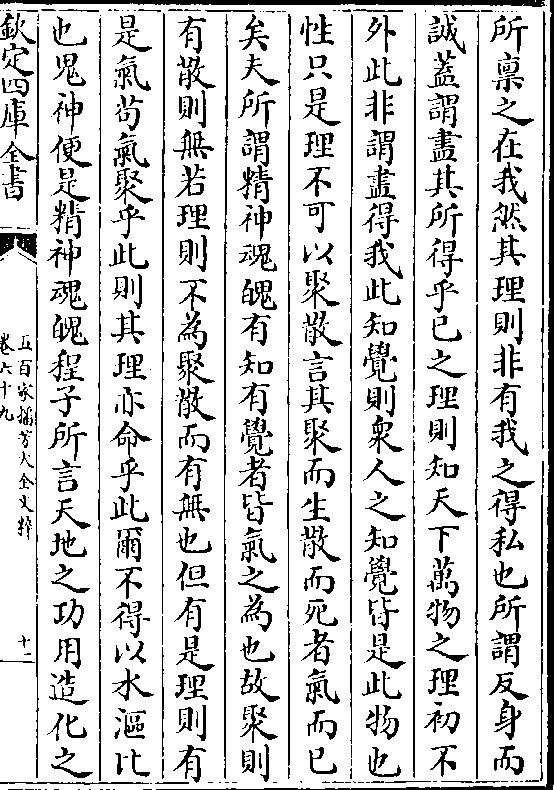 所禀之在我然其理則非有我之得私也所謂反身而
誠蓋謂盡其所得乎已之理則知天下萬物之理初不
外此非謂盡得我此知覺則衆人之知覺皆是此物也
性只是理不可以聚散言其聚而生散而死者氣而已
矣夫所謂精神魂魄有知有覺者皆氣之為也故聚則
有散則無若理則不為聚散而有無也但有是理則有
是氣茍氣聚乎此則其理亦命乎此爾不得以水漚比
也鬼神便是精神魂魄程子所言天地之功用造化之
欽定四庫全書
五百家播芳大全文粹
卷六十九
十二